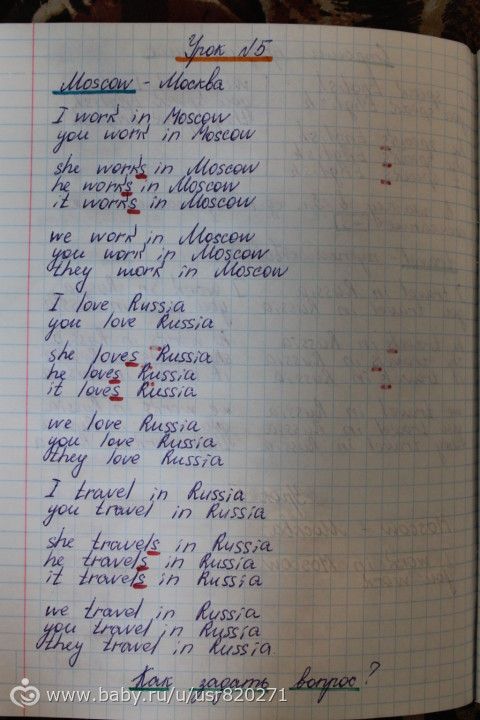 Урок №5
Moscow - Москва
I work in Moscow
you work in Moscow
she works in Moscow
he works in Moscow
it works in Moscow
we work in Moscow
you work in Moscow
they work in Moscow
I love Russia
you love Russia
she loves Russia
he loves Russia
it loves Russia
we love Russia
you love Russia
they love Russia
I travel in Russia
you travel in Russia
she travels in Russia
he travels in Russia
it travels in Russia
we travel in Russia
you travel in Russia
they travel in Russia.
Как задать вопрос?
www.baby.ru/u/usr820271